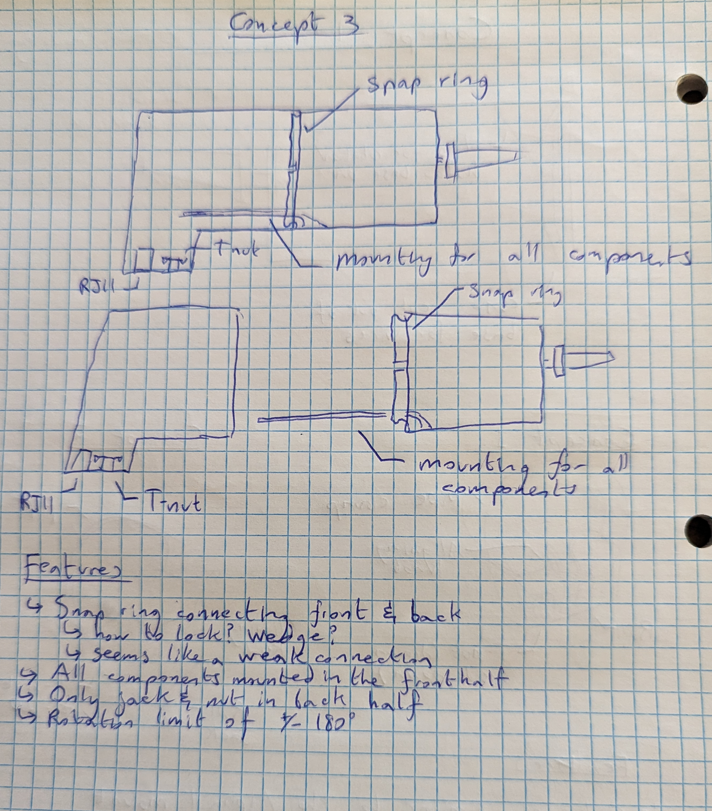 Concept 3
Snap ring
T nut
mounting for all components
RJ11
Snap ring
mounting for all
components
RJ11
T-nut
Features
↳ Snap ring connecting front & back
↳ how to lock? Wedge?
↳ seems like a weak connection
↳ All components mounted in the front half
↳ Only jack & nut in back half
↳ Rotation limit of +/- 180°